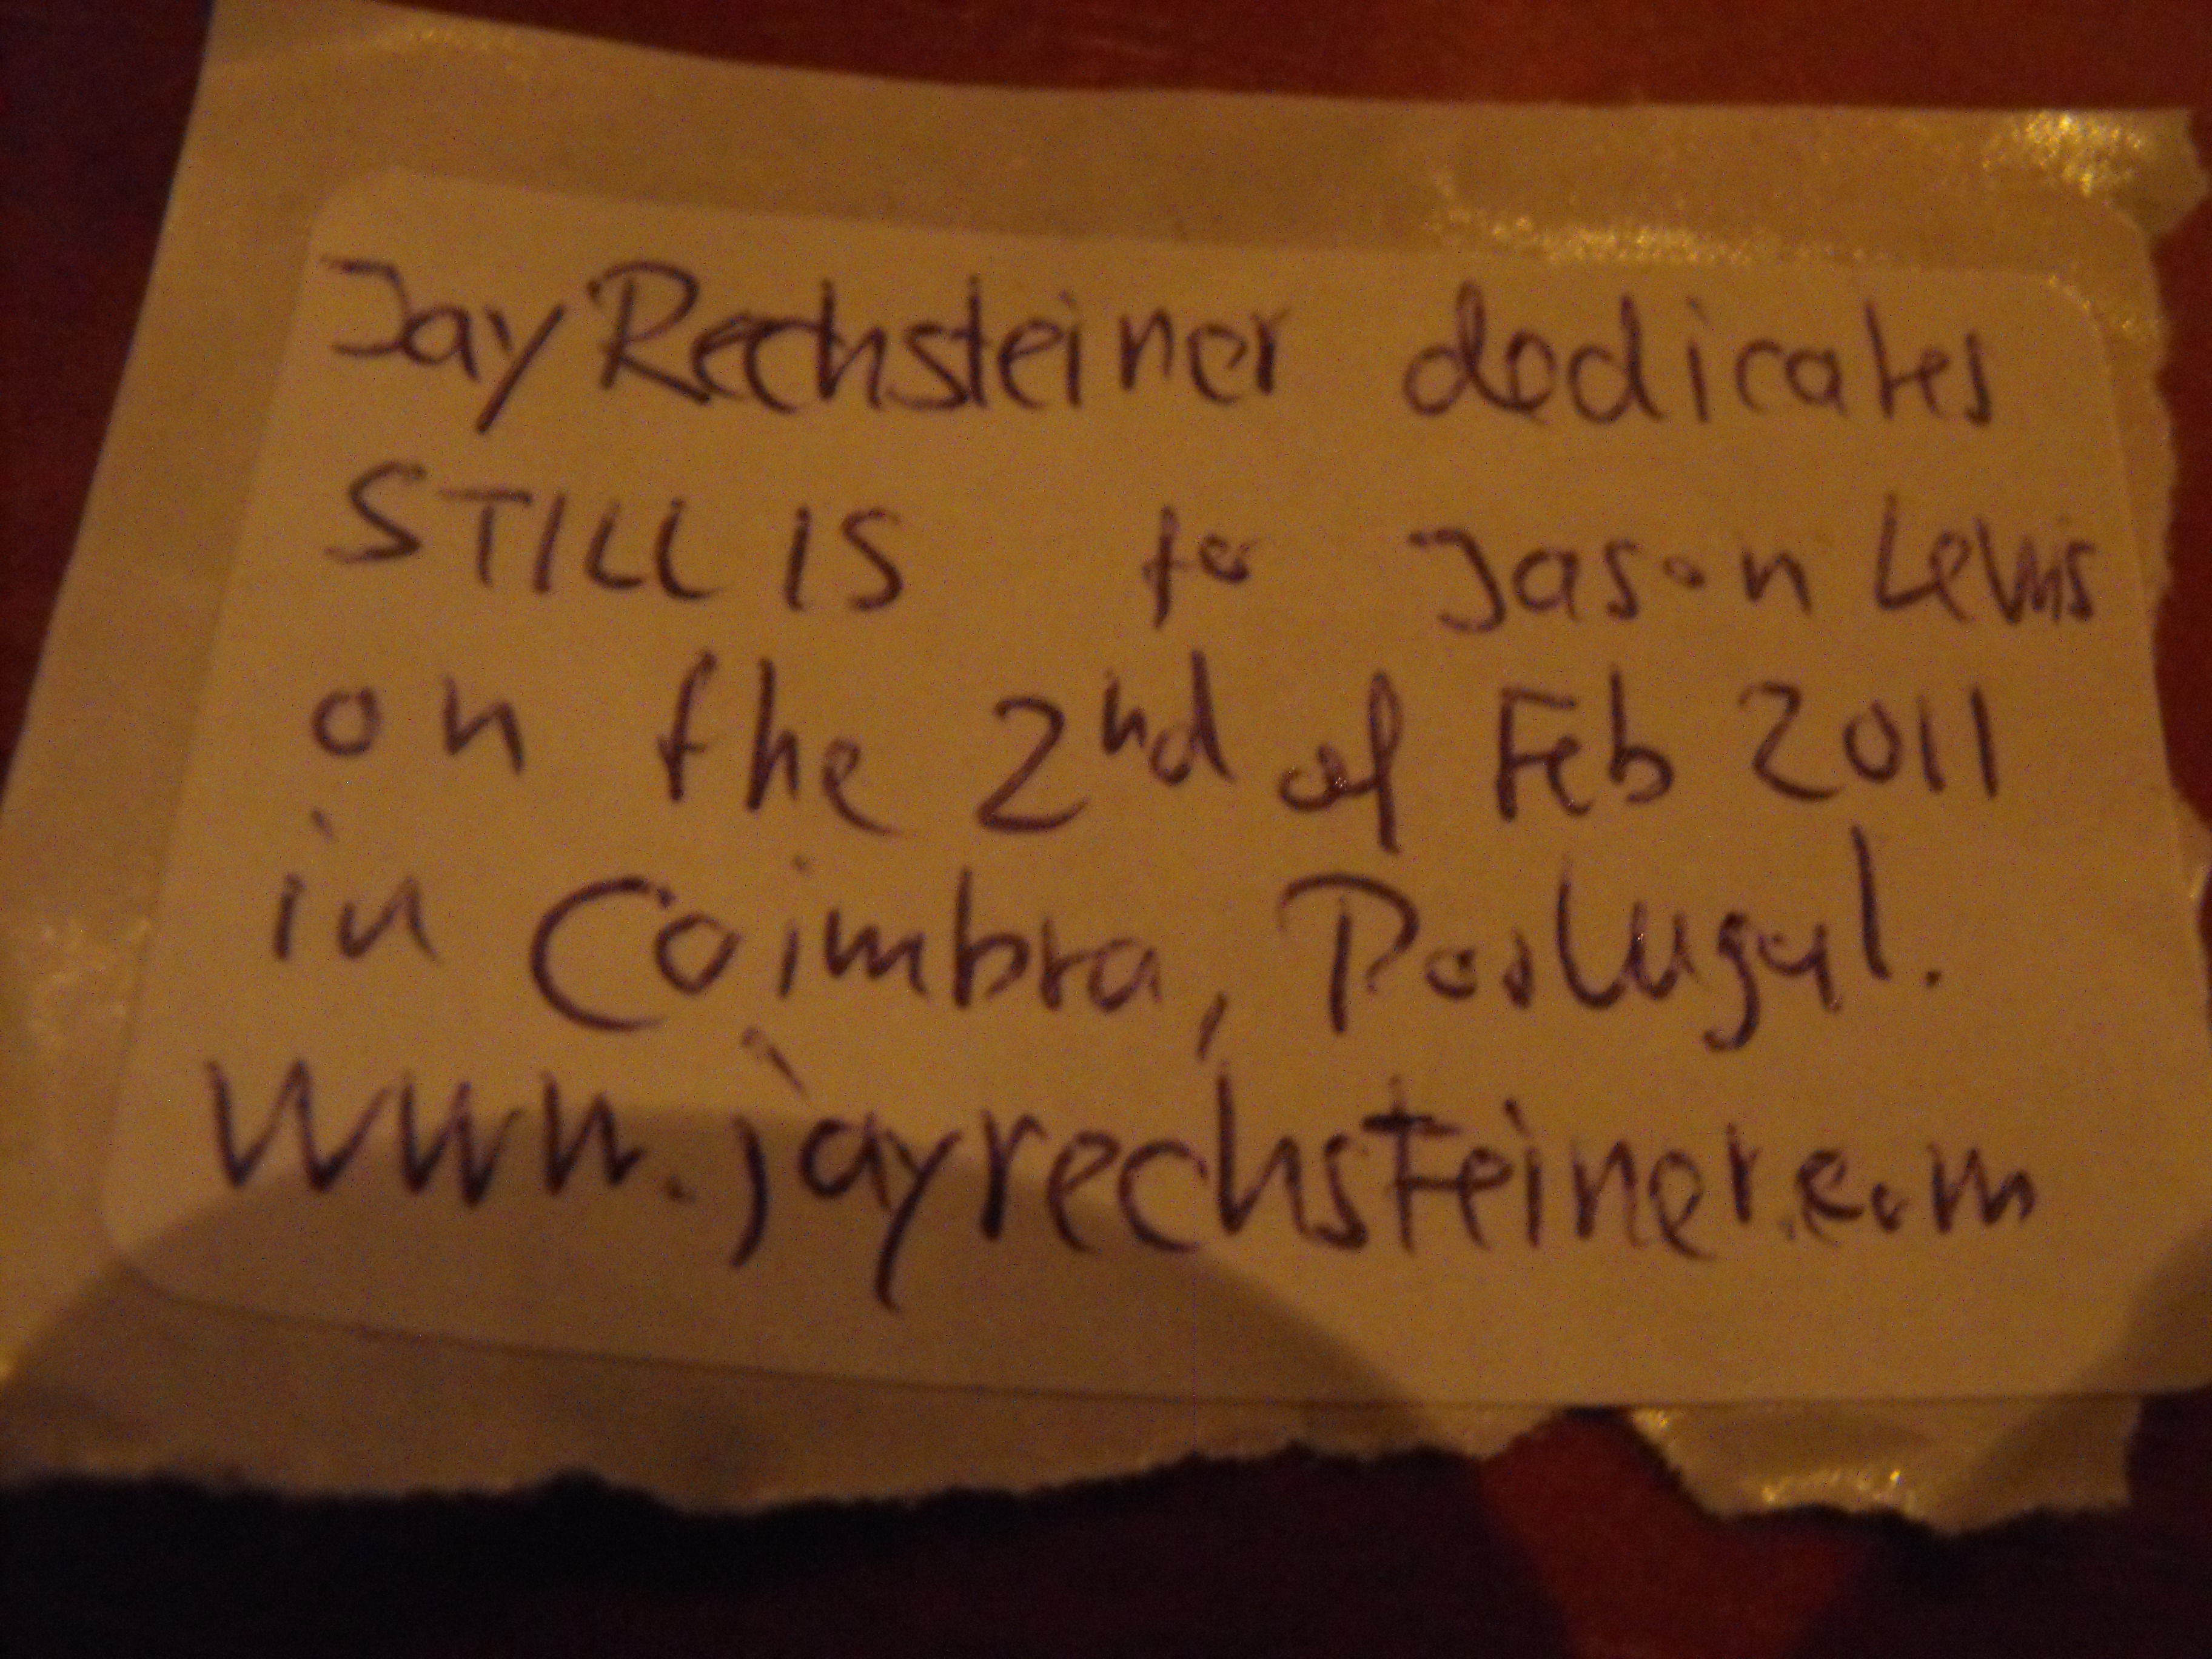 Jay Rechsteiner dedicates
STILL IS to Jason Lewis
on the 2nd of Feb 2011
in Coimbra, Portugal.
www.jayrechsteiner.com